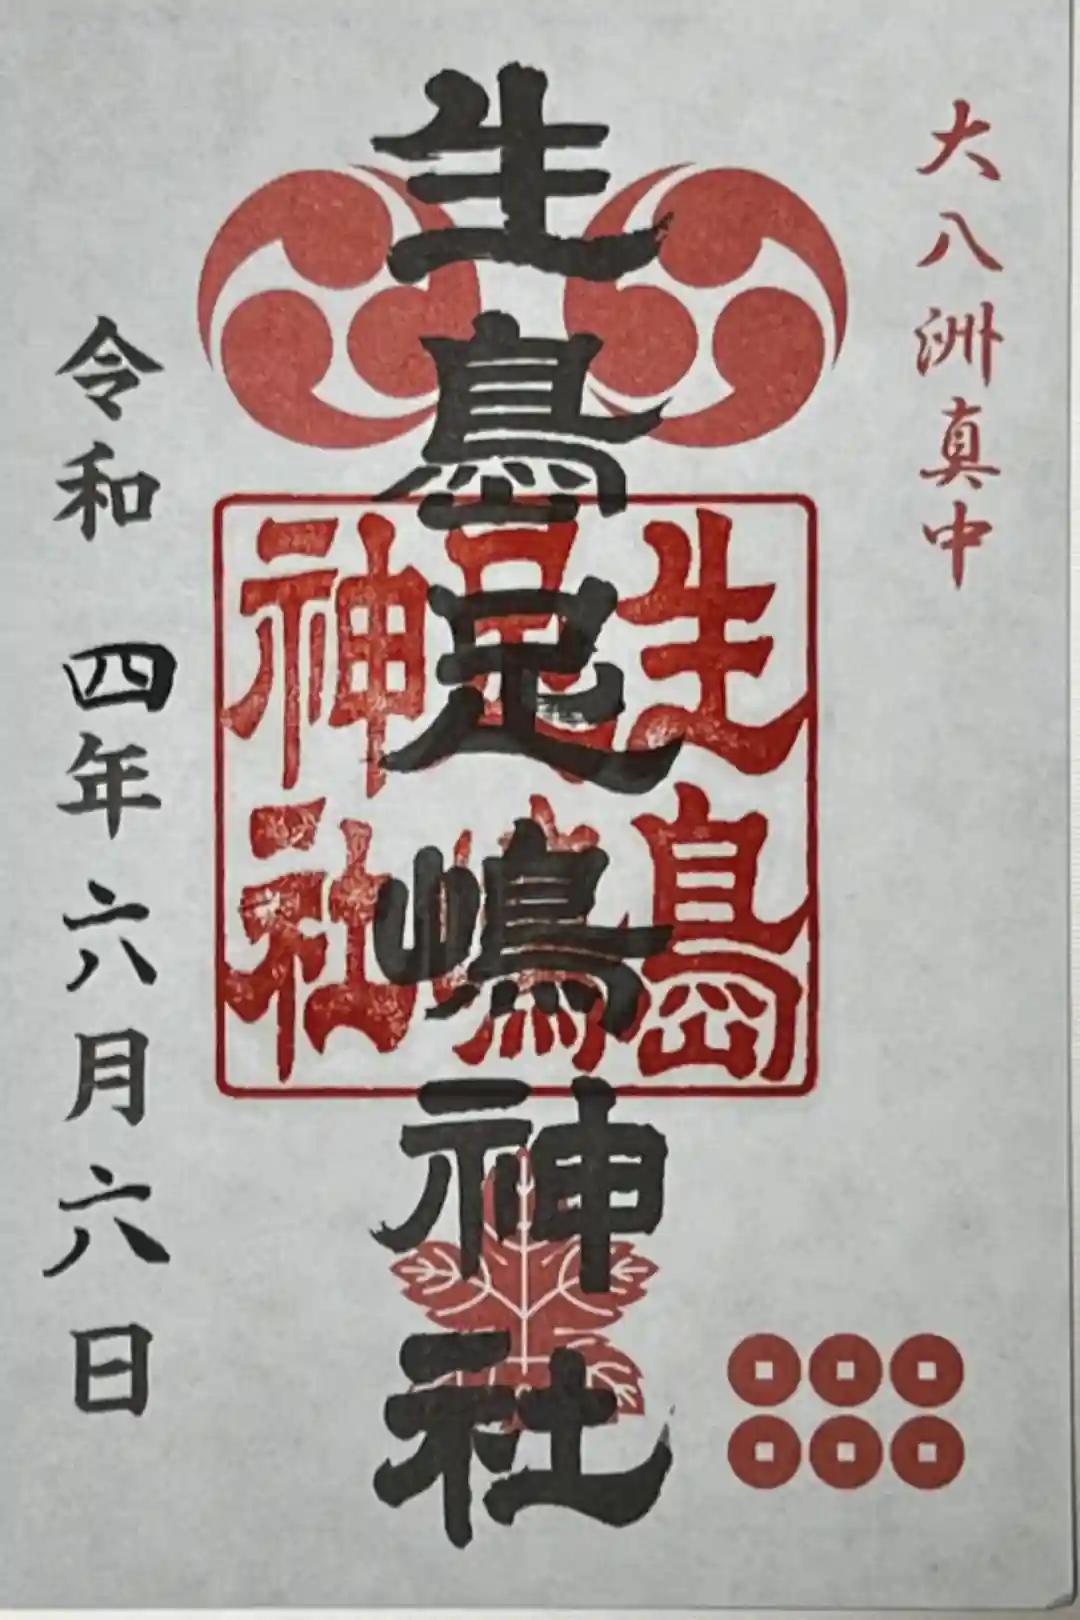 大八洲真中
生島足嶋神社
生島
足嶋
神社
令和四年六月六日